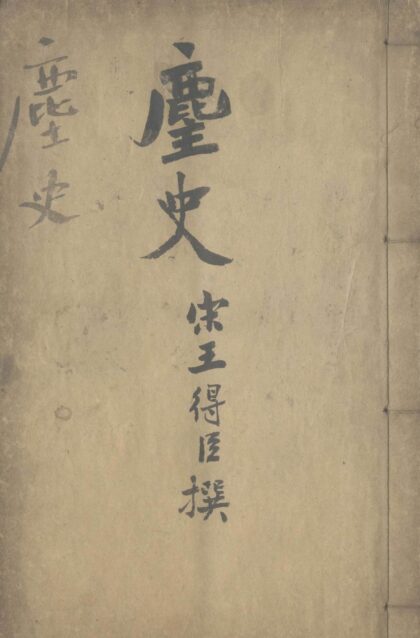 麈史 宋王得臣撰
麈史